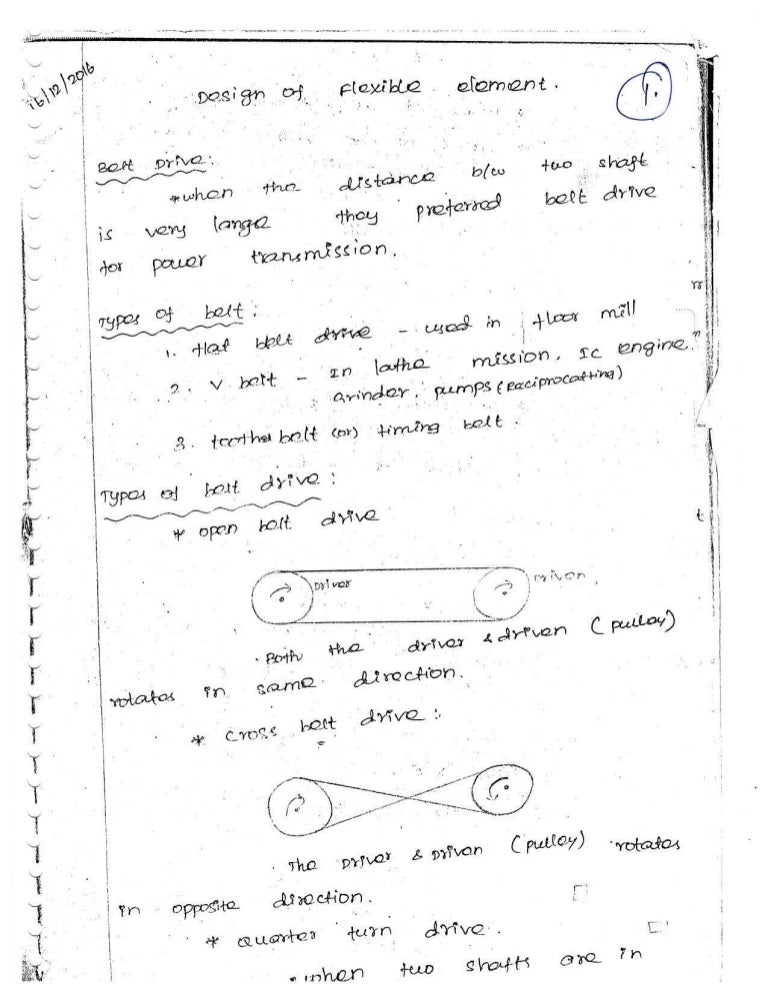 16/12/2016
Design of Flexible element.
1.
Belt Drive:
*when the distance b/w two shaft
is very large they preferred belt drive
for power transmission.
Types of belt:
1. flat belt drive - used in floor mill
2. V belt - In lathe mission, IC engine."
Grinder, pumps (Reciprocatting)
3. toothed belt (or) timing belt.
Types of belt drive:
* open belt drive
Driver
Driven
. Both the driver & driven (pulley)
rotates in same direction.
* Cross belt drive:
. The Driver & Driven (pulley) rotates
in opposite direction.
* Quarter turn drive.
. when two shafts are in